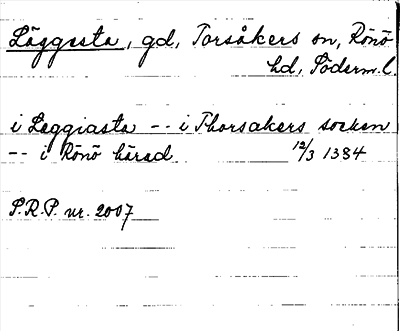 Läggesta, gd, Torsåkers sn, Rönö
hd, Söderm.l.
i Leggiasta -- i Thorsakers socken
-- i Rönö härad 12/3 1384
S.R.P. nr. 2007